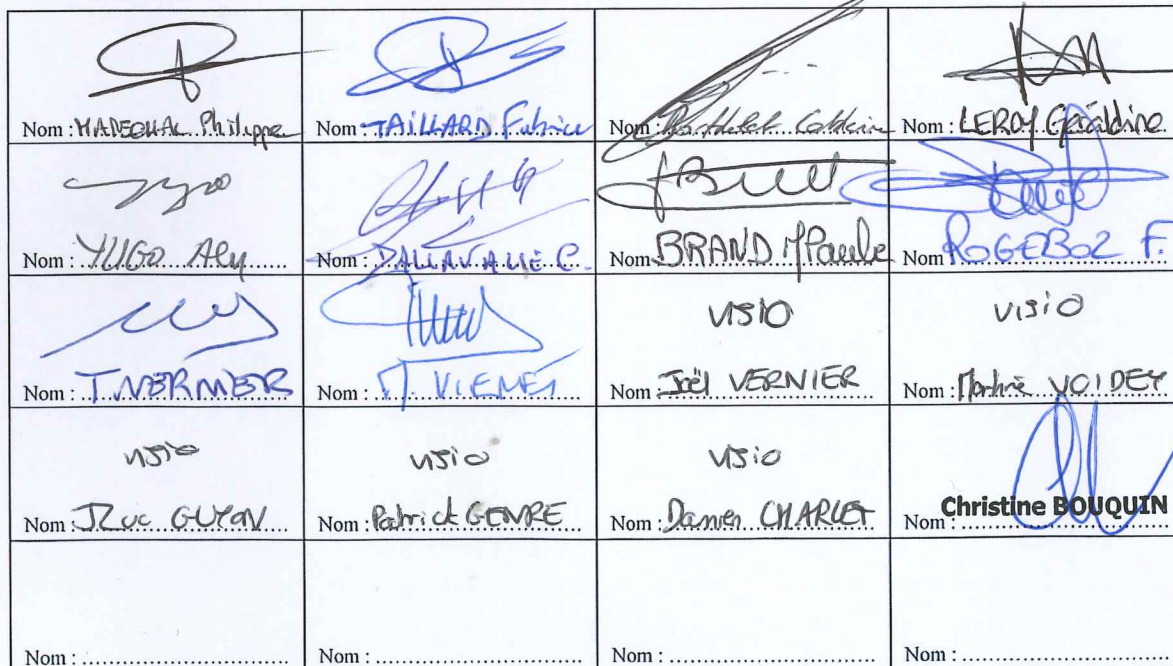 Nom : MARECHAL Philippe
Nom : TAILLARD Fabrice
Nom :
Nom : LEROY Géraldine
Nom : YUGO Aly
Nom : DALLAVALLE C.
Nom BRAND MPaule
Nom ROGEBOZ F.
Nom : T. VERMER
Nom : M. VIENET
visio
Nom : Joël VERNIER
visio
Nom : Martine VOIDEY
visio
Nom : JLuc GUYON
visio
Nom : Patrick GENRE
visio
Nom : Damien CHARLET
Nom : Christine BOUQUIN
Nom : ..............................
Nom : ..............................
Nom : ..............................
Nom : ..............................